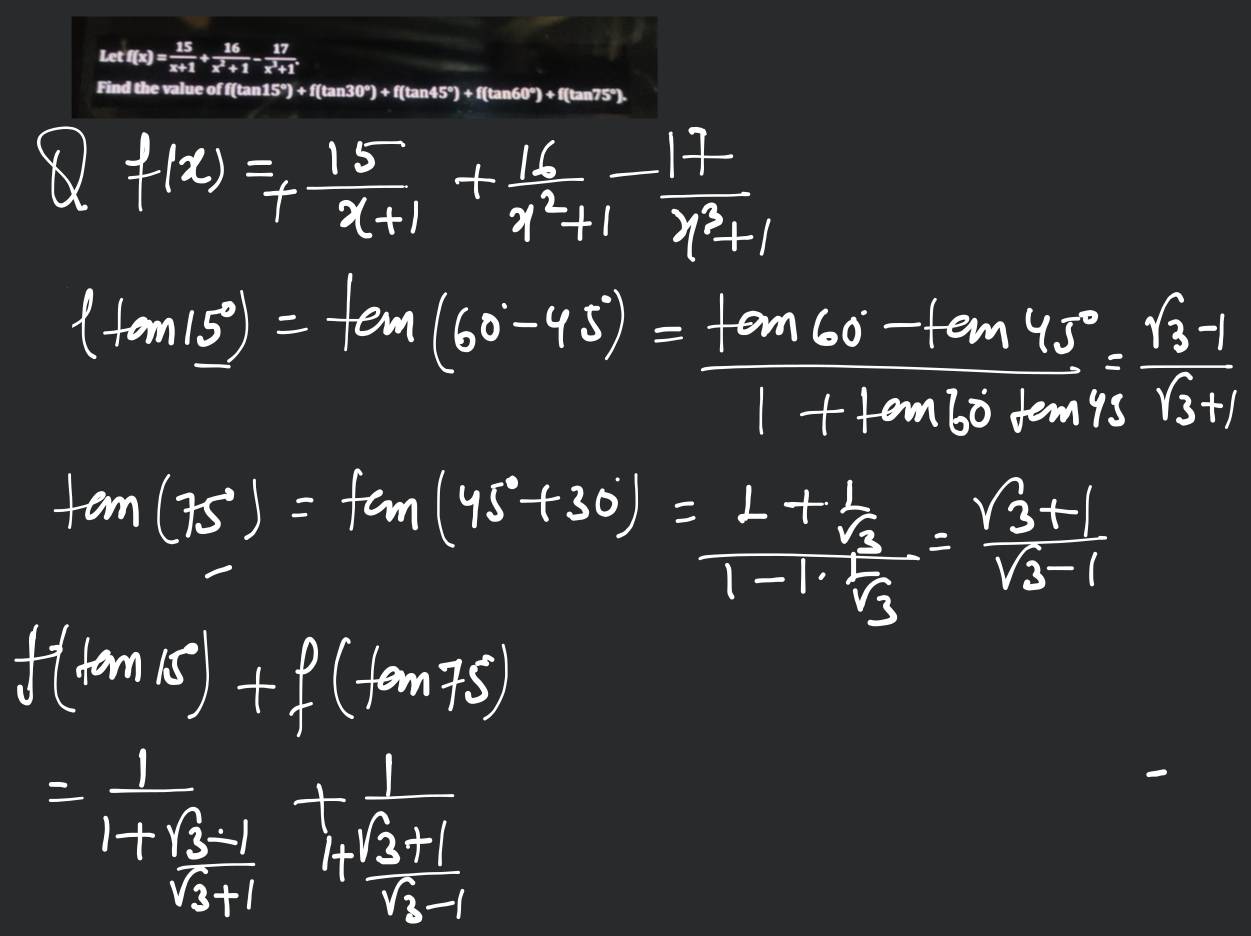 Let f(x) = 15/(x+1) + 16/(x²+1) - 17/(x³+1).
Find the value of f(tan15°) + f(tan30°) + f(tan45°) + f(tan60°) + f(tan75°).
Q f(x) = + 15/(x+1) + 16/(x²+1) - 17/(x³+1)
(tan 15°) = tan (60° - 45°) = (tan 60° - tan 45°)/(1 + tan 60° tan 45) = (√3-1)/(√3+1)
tan (75°) = tan (45° + 30°) = (1 + 1/√3)/(1 - 1·1/√3) = (√3+1)/(√3-1)
f(tan 15°) + f(tan 75°)
= 1/(1 + (√3-1)/(√3+1)) + 1/(1 + (√3+1)/(√3-1))